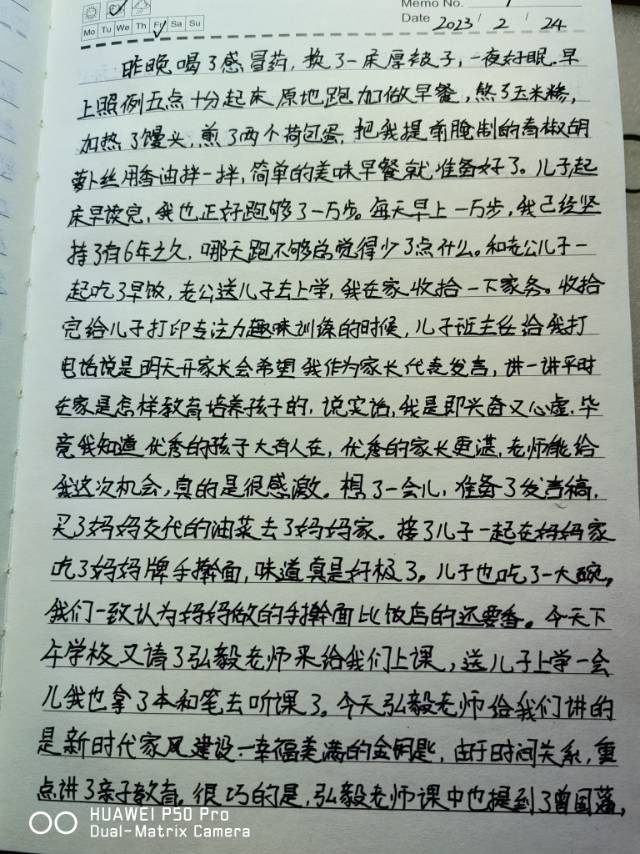 Memo No.
Mo Tu We Th Fr Sa Su
Date 2023 / 2 / 24
昨晚喝了感冒药，换了一床厚被子，一夜好眠。早
上照例五点十分起床，原地跑加做早餐，熬了玉米糁，
加热了馒头，煎了两个荷包蛋，把我提前腌制的青椒胡
萝卜丝用香油拌一拌，简单的美味早餐就准备好了。儿子起
床早读完，我也正好跑够了一万步。每天早上一万步，我已经坚
持了有6年之久，哪天跑不够总觉得少了点什么。和老公儿子一
起吃了早饭，老公送儿子去上学，我在家收拾一下家务。收拾
完给儿子打印专注力趣味训练的时候，儿子班主任给我打
电话说是明天开家长会希望我作为家长代表发言，讲一讲平时
在家是怎样教育培养孩子的，说实话，我是即兴奋又心虚，毕
竟我知道优秀的孩子大有人在，优秀的家长更湛，老师能给
我这次机会，真的是很感激。想了一会儿，准备了发言稿，
买了妈妈交代的油菜去了妈妈家。接了儿子一起在妈妈家
吃了妈妈牌手擀面，味道真是好极了。儿子也吃了一大碗，
我们一致认为妈妈做的手擀面比饭店的还要香。今天下
午学校又请了弘毅老师来给我们上课，送儿子上学一会
儿我也拿了本和笔去听课了。今天弘毅老师给我们讲的
是新时代家风建设-幸福美满的金钥匙，由于时间关系，重
点讲了亲子教育。很巧的是，弘毅老师课中也提到了曾国藩，
HUAWEI P50 Pro
Dual-Matrix Camera